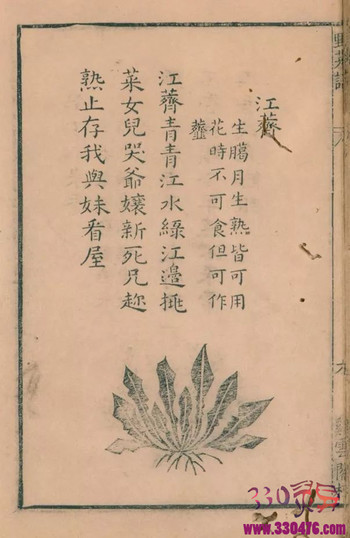 江薺
生臈月生熟皆可用
花時不可食但可作
虀
江薺青青江水綠江邊挑
菜女兒哭爺孃新死兄趂
熟止存我與妹看屋
330
www.330476.com